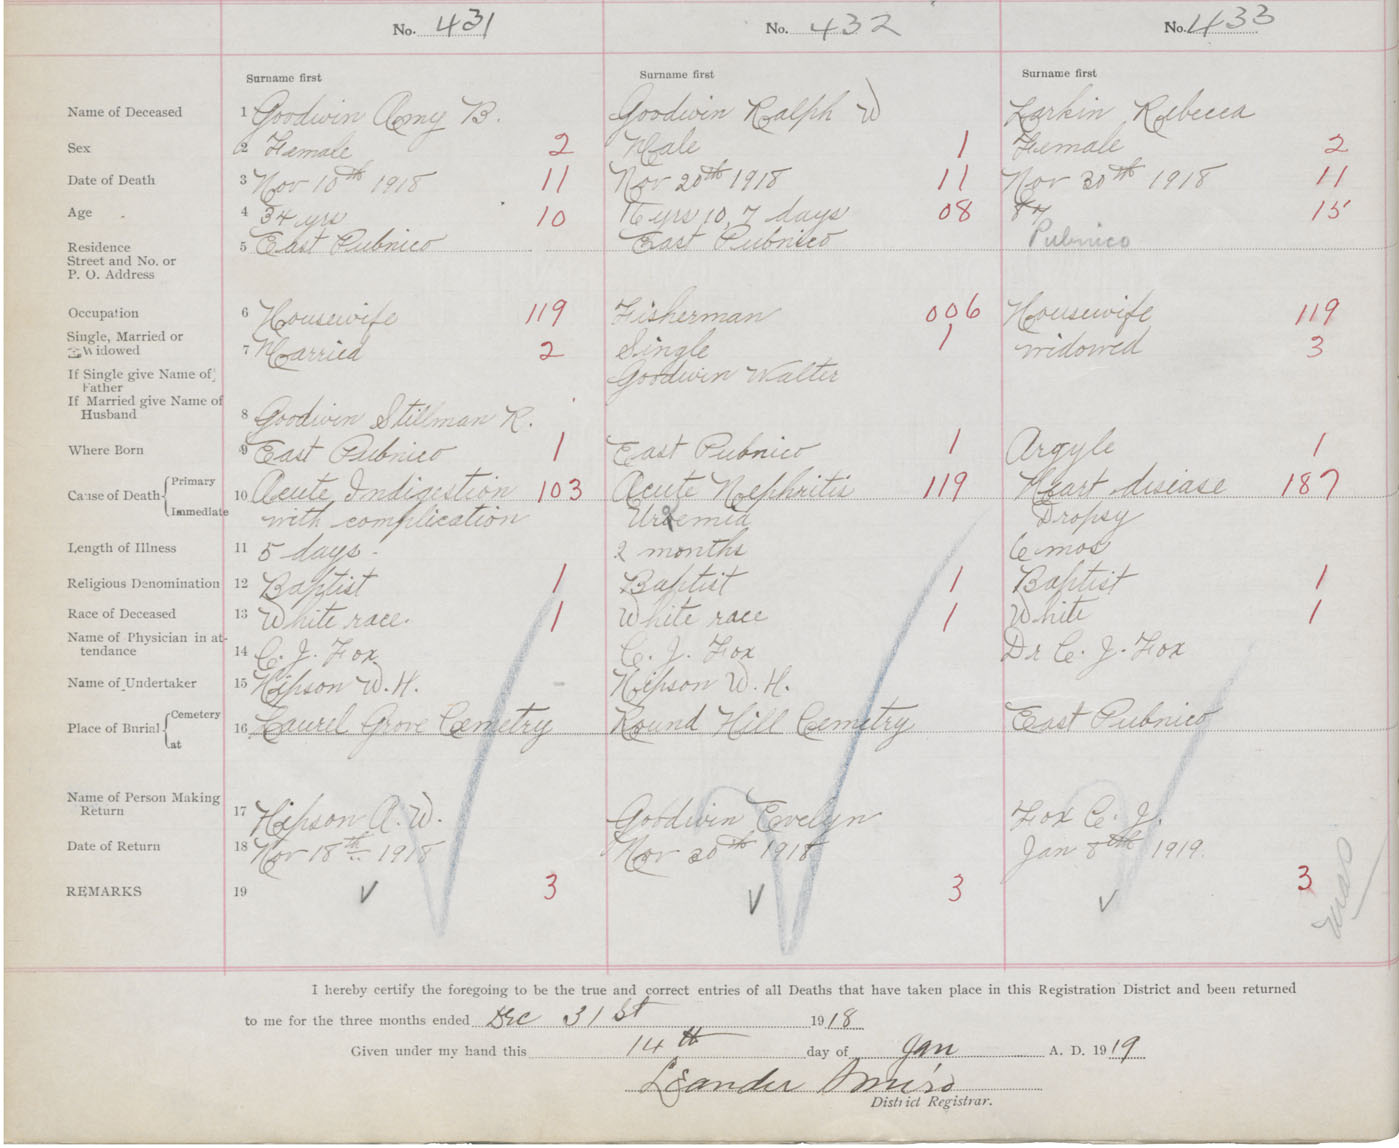 No. 431 No. 432 No. 433
Surname first Surname first Surname first
Name of Deceased 1 Goodwin Amy B. Goodwin Ralph W Larkin Rebecca
Sex 2 Female 2 Male 1 Female 2
Date of Death 3 Nov 10th 1918 11 Nov 20th 1918 11 Nov 30th 1918 11
Age 4 34 yrs 10 16 yrs 10, 7 days 08 84 15
Residence 5 East Pubnico East Pubnico Pubnico
Street and No. or
P. O. Address
Occupation 6 Housewife 119 Fisherman 006 Housewife 119
Single, Married or
Widowed 7 Married 2 Single 1 widowed 3
If Single give Name of Goodwin Walter
Father
If Married give Name of
Husband 8 Goodwin Stillman R.
Where Born 9 East Pubnico 1 East Pubnico 1 Argyle 1
Cause of Death Primary 10 Acute Indigestion 103 Acute Nephritis 119 Heart disease 187
Immediate with complication Uraemia Dropsy
Length of Illness 11 5 days. 2 months 6 mos
Religious Denomination 12 Baptist 1 Baptist 1 Baptist 1
Race of Deceased 13 White race. 1 White race 1 White 1
Name of Physician in at-
tendance 14 C. J. Fox C. J. Fox Dr C. J. Fox
Name of Undertaker 15 Hipson W. H. Hipson W. H.
Place of Burial Cemetery 16 Laurel Grove Cemetry Round Hill Cemetry East Pubnico
at
Name of Person Making
Return 17 Hipson A. W. Goodwin Evelyn Fox C. J.
Date of Return 18 Nov 18th 1918 Nov 20th 1918 Jan 8th 1919.
REMARKS 19 3 3 3
I hereby certify the foregoing to be the true and correct entries of all Deaths that have taken place in this Registration District and been returned
to me for the three months ended Dec 31st 1918
Given under my hand this 14th day of Jan A. D. 1919
Leander
District Registrar.